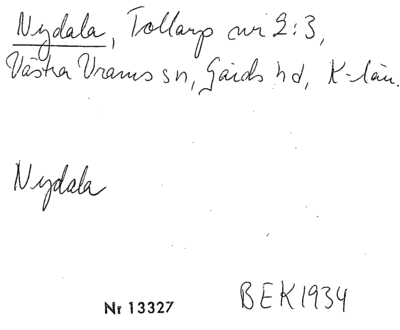 Nydala, Tollarp cvi 2:3,
Västra Vrams sn, Gärds hd, K-län.
Nydala
Nr 13327 BEK 1934